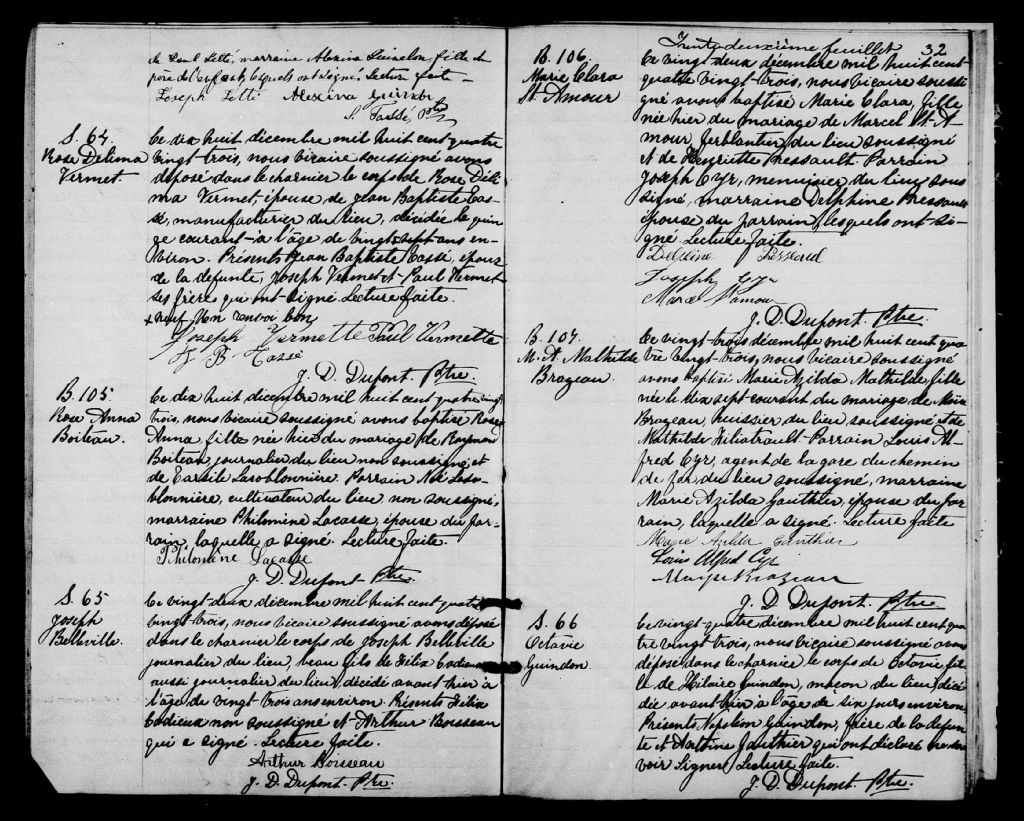 de Paul Letté, marraine Alexina fille du
lesquels ont signé. Lecture faite
Joseph Letté Alexina
S. Tassé, Ptre
S. 64.
Rose Delima
Vermet.
Ce dix huit decembre mil huit cent quatre
vingt-trois, nous vicaire soussigné avons
déposé dans le charnier le corps de Rose Déli
ma Vermet, épouse de Jean Baptiste Cas-
sé, manufacturier du lieu, décédée le quin
ze courant à l'âge de vingt sept ans en-
viron. Présents Jean Baptiste Cassé, époux
de la defunte, Joseph Vermet et Paul Vermet
ses frère qui ont signé Lecture faite.
+ neuf, Un renvoi bon
Joseph Vermette Paul Vermette
J. B. Cassé
J. D. Dupont. Ptre.
B. 105
Rose Anna
Boiteau.
Ce dix huit decembre mil huit cent quatre vingt
trois, nous vicaire soussigné avons baptisé Rose
Anna, fille née hier du mariage de Raymond
Boiteau, journalier du lieu non soussigné, et
de Tarsile Lasoblonnière. Parrain Noé Laso-
blonnière, cultivateur du lieu non soussigné,
marraine Philomine Lacasse, épouse du par-
rain, laquelle a signé. Lecture faite.
Philomène Lacasse
J. D. Dupont Ptre.
S. 65
Joseph
Bellville.
Ce vingt-deux décembre mil huit cent quatre
vingt-trois, nous vicaire soussigné avons déposé
dans le charnier le corps de Joseph Bellville
journalier du lieu, beau fils de Félix Cadieux
aussi journalier du lieu, décédé avant hier à
l'âge de vingt trois ans environ. Présents Félix
Cadieux non soussigné et Arthur Boisseau
qui a signé. Lecture faite.
Arthur Boisseau
J. D. Dupont Ptre.
Trente-deuxième feuillet 32
B. 106.
Marie Clara
St. Amour
Ce vingt deux décembre mil huit cent-
quatre vingt-trois, nous vicaire soussi
gné avons baptisé Marie Clara, fille
née hier du mariage de Marcel St. A-
mour, ferblantier du lieu soussigné
et de Henriette Pressault. Parrain
Joseph Cyr, menuisier du lieu sous
signé, marraine Delphine Pressault
épouse du parrain, lesquels ont si-
gné Lecture faite.
Joseph Cyr
J. D. Dupont. Ptre.
B. 107.
M. A. Mathilde
Brazeau.
Ce vingt-trois décembre mil huit cent qua
tre vingt-trois, nous vicaire soussigné
avons baptisé Marie Azilda Mathilde, fille
née le dix sept courant du mariage de
Brazeau, huissier du lieu soussigné et de
Mathilde Filiatrault. Parrain Louis Al-
fred Cyr, agent de la gare du chemin
de fer, du lieu soussigné, marraine
Marie Azilda Gauthier, épouse du par-
rain, laquelle a signé. Lecture faite
Marie Azilda Gauthier
Louis Alfred Cyr
Brazeau
J. D. Dupont. Ptre.
S. 66
Octavie
Guindon.
Ce vingt-quatre décembre mil huit cent qua
tre vingt-trois, nous vicaire soussigné avons
déposé dans le charnier le corps de Octavie fil
le de Hilaire Guindon, maçon du lieu, décé
dée avant hier à l'âge de dix jours environ
Présents Napoléon Guindon, frère de la defun
te et Gauthier qui ont déclaré ne sa
voir signer Lecture faite.
J. D. Dupont. Ptre.